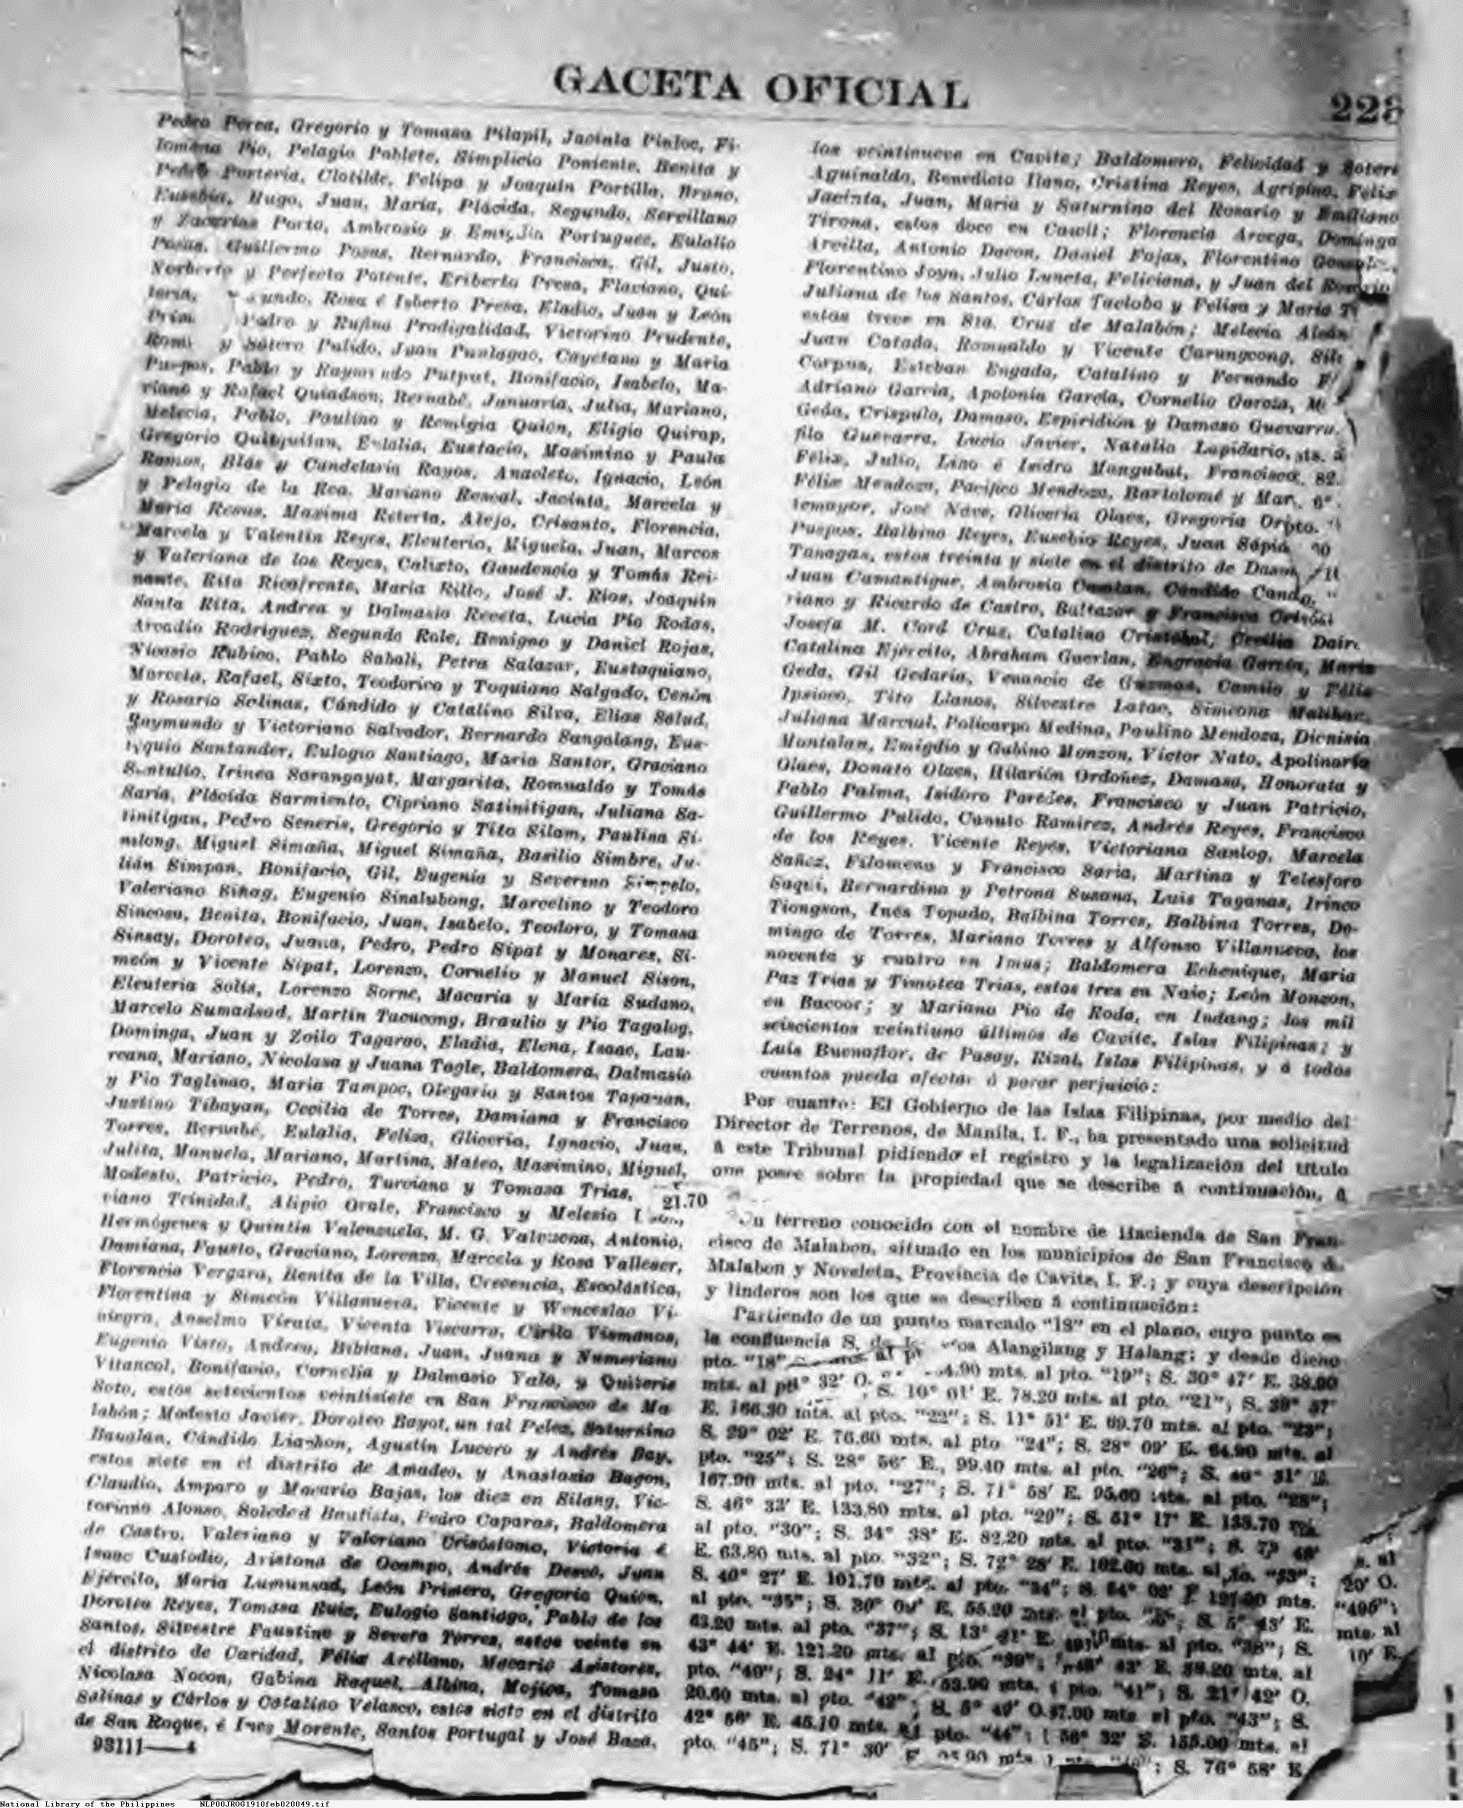 GACETA OFICIAL
228
Pedro Perea, Gregorio y Tomasa Pilapil, Jacinta Pinloc, Fi-
lomena Pio, Pelagio Poblete, Simplicio Poniente, Benita y
Pedro Porteria, Clotilde, Felipa y Joaquin Portilla, Bruno,
Eusebia, Hugo, Juan, María, Plácida, Segundo, Servillano
y Zacarias Porto, Ambrosio y Emigdia Portugues, Eulalio
Posas, Guillermo Posas, Bernardo, Francisca, Gil, Justo,
Norberto y Perfecto Potente, Eriberto Presa, Flaviano, Qui-
undo, Rosa é Isberto Presa, Eladio, Juan y León
Pedro y Rufina Prodigalidad, Victorino Prudente,
y Sotero Pulido, Juan Punlagao, Cayetano y Maria
Puspos, Pablo y Raymundo Putput, Bonifacio, Isabelo, Ma-
riano y Rafael Quiadson, Bernabé, Januaria, Julia, Mariano,
Melecia, Pablo, Paulino y Remigia Quion, Eligio Quirap,
Gregorio Quitquitan, Eulalia, Eustacio, Maximino y Paula
Ramos, Blás y Candelaria Rayos, Anacleto, Ignacio, León
y Pelagio de la Rea, Mariano Rescal, Jacinta, Marcela y
María Resus, Maxima Reterta, Alejo, Crisanto, Florencia,
Marcela y Valentin Reyes, Eleuterio, Miguela, Juan, Marcos
y Valeriana de los Reyes, Calixto, Gaudencio y Tomás Rei-
nante, Rita Ricafrente, María Rillo, José J. Rios, Joaquín
Santa Rita, Andrea y Dalmasio Receta, Lucia Pio Rodas,
Arcadio Rodriguez, Segundo Role, Benigno y Daniel Rojas,
Nicasio Rubico, Pablo Sabali, Petra Salazar, Eustaquiano,
Marcela, Rafael, Sixto, Teodorico y Toquiano Salgado, Cenón
y Rosario Solinas, Cándido y Catalino Silva, Elias Salud,
Raymundo y Victoriano Salvador, Bernardo Sangalang, Eus-
taquio Santander, Eulogio Santiago, María Santor, Graciano
Santulio, Irinea Sarangayat, Margarita, Romualdo y Tomás
Saria, Plácida Sarmiento, Cipriano Satinitigan, Juliana Sa-
tinitigan, Pedro Seneris, Gregorio y Tito Silam, Paulina Si-
milong, Miguel Simaña, Miguel Simaña, Basilio Simbre, Ju-
lián Simpan, Bonifacio, Gil, Eugenia y Severino
Valeriano Siñag, Eugenio Sinalubong, Marcelino y Teodoro
Sincosa, Benita, Bonifacio, Juan, Isabelo, Teodoro, y Tomasa
Sinsay, Doroteo, Juana, Pedro, Pedro Sipat y Monares, Si-
meón y Vicente Sipat, Lorenzo, Cornelio y Manuel Sison,
Eleuteria Solis, Lorenzo Sorne, Macaria y María Sudano,
Marcelo Sumadsad, Martin Tacucong, Braulio y Pio Tagalog,
Dominga, Juan y Zoilo Tagarao, Eladia, Elena, Isaac, Lau-
reana, Mariano, Nicolasa y Juana Tagle, Baldomera, Dalmasio
y Pio Taglinao, Maria Tampoc, Olegario y Santos Tapawan,
Justino Tibayan, Cecilia de Torres, Damiana y Francisco
Torres, Bernabé, Eulalia, Feliza, Gliceria, Ignacio, Juan,
Julita, Manuela, Mariano, Martina, Mateo, Maximino, Miguel,
Modesto, Patricio, Pedro, Turciano y Tomasa Trias,
viano Trinidad, Alipio Orale, Francisco y Melesio
Hermógenes y Quintin Valenzuela, M. G. Valezona, Antonio,
Damiana, Fausto, Graciano, Lorenzo, Marcela y Rosa Vallesar,
Florencio Vergara, Benita de la Villa, Crecencia, Escolástica,
Florentina y Simeón Villanueva, Vicente y Wenceslao Vi-
niegra, Anselmo Virata, Vicenta Viscarra, Cirilo Vismanos,
Eugenio Visto, Andrea, Bibiana, Juan, Juana y Numeriano
Vitancol, Bonifacio, Cornelia y Dalmasio Yalo, y Quiteria
Soto, estos setecientos veintisiete en San Francisco de Ma-
labón; Modesto Javier, Doroteo Bayot, un tal Pelez, Saturnino
Baualan, Cándido Liashon, Agustín Lucero y Andrés Bay,
estos siete en el distrito de Amadeo, y Anastasio Bagon,
Claudio, Amparo y Macario Bajas, los diez en Silang, Vic-
toriano Alonso, Soledad Bautista, Pedro Caparas, Baldomera
de Castro, Valeriano y Valeriano Crisóstomo, Victoria é
Isaac Custodio, Aristona de Ocampo, Andrés Descó, Juan
Ejército, María Lumunsad, León Primero, Gregoria Quion,
Dorotea Reyes, Tomasa Ruiz, Eulogio Santiago, Pablo de los
Santos, Silvestre Faustino y Severo Torres, estos veinte en
el distrito de Caridad, Félix Arellano, Macario Aristores,
Nicolasa Nocon, Gabina Raquel, Albina, Mojica, Tomasa
Salinas y Cárlos y Catalino Velasco, estos siete en el distrito
de San Roque, é Ines Morente, Santos Portugal y José Baza,
93111—4
los veintinueve en Cavite; Baldomero, Felicidad y
Aguinaldo, Benedicto Ilano, Cristina Reyes, Agripino, Felix
Jacinta, Juan, María y Saturnino del Rosario y Emiliano
Tirona, estos doce en Cawit; Florencia Arcega, Dominga
Arcilla, Antonio Dacon, Daniel Fojas, Florentino
Florentino Joya, Julio Luneta, Feliciana, y Juan del
Juliana de los Santos, Cárlos Taclobo y Felisa y María
estos trece en Sta. Cruz de Malabón; Melecia
Juan Catada, Romualdo y Vicente Carungcong,
Corpus, Esteban Engada, Catalino y Fernando
Adriano Garcia, Apolonia García, Cornelio García,
Geda, Crispulo, Damaso, Espiridión y Damaso Guevarra,
filo Guevarra, Lucio Javier, Natalio Lapidario, sts. a
Félix, Julio, Lino é Isidro Mangubat, Francisca, 82.
Félix Mendoza, Pacifico Mendoza, Bartolomé y
temayor, José Nave, Gliceria Olaes, Gregoria
Puspos, Balbino Reyes, Eusebio Reyes, Juan
Tanagas, estos treinta y siete en el distrito de
Juan Camantigue, Ambrosio Camtan, Cándido
riano y Ricardo de Castro, Baltazar y Francisca
Josefa M. Cord Cruz, Catalino Cristobal, Cecilia
Catalina Ejército, Abraham Guerlan, Engracia García, María
Geda, Gil Gedaria, Venancio de Guzman, Camilo y Félix
Ipsioco, Tito Llanos, Silvestre Latac, Simeona Malihac,
Juliana Marcial, Policarpo Medina, Paulino Mendoza, Dionisia
Montalan, Emigdio y Gabino Monzon, Victor Nato, Apolinaria
Olaes, Donato Olaes, Hilarión Ordoñez, Damasa, Honorata y
Pablo Palma, Isidoro Paredes, Francisco y Juan Patricio,
Guillermo Pulido, Canuto Ramirez, Andrés Reyes, Francisco
de los Reyes, Vicente Reyes, Victoriana Sanlog, Marcela
Sañez, Filomeno y Francisco Saria, Martina y Telesforo
Saqui, Bernardina y Petrona Susana, Luis Taganas, Irineo
Tiongson, Inés Topado, Balbina Torres, Balbina Torres, Do-
mingo de Torres, Mariano Torres y Alfonso Villanueva, los
noventa y cuatro en Imus; Baldomera Echenique, Maria
Paz Trias y Timotea Trias, estos tres en Naic; León Monzon,
en Bacoor; y Mariano Pio de Roda, en Indang; los mil
seiscientos veintiuno últimos de Cavite, Islas Filipinas; y
Luis Buenaflor, de Pasay, Rizal, Islas Filipinas, y á todos
cuantos pueda afectar ó parar perjuicio:
Por cuanto: El Gobierno de las Islas Filipinas, por medio del
Director de Terrenos, de Manila, I. F., ha presentado una solicitud
á este Tribunal pidiendo el registro y la legalización del título
que posee sobre la propiedad que se describe á continuación, á
21.70
Un terreno conocido con el nombre de Hacienda de San Fran-
cisco de Malabon, situado en los municipios de San Francisco de
Malabon y Noveleta, Provincia de Cavite, I. F.; y cuya descripción
y linderos son los que se describen á continuación:
Partiendo de un punto marcado "18" en el plano, cuyo punto es
la confluencia S. de Alangilang y Halang; y desde dicho
pto. "18" 4.90 mts. al pto. "19"; S. 30° 47' E. 38.90
mts. al 32' O. S. 10° 01' E. 78.20 mts. al pto. "21"; S. 39° 57'
E. 166.30 mts. al pto. "22"; S. 11° 51' E. 69.70 mts. al pto. "23";
S. 29° 02' E. 76.60 mts. al pto "24"; S. 28° 09' E. 64.90 mts. al
pto. "25"; S. 28° 56' E., 99.40 mts. al pto. "26"; S. 40° 51' E.
167.90 mts. al pto. "27"; S. 71° 58' E. 95.60 mts. al pto. "28";
S. 46° 33' E. 133.80 mts. al pto. "29"; S. 51° 17' E. 133.70 mts.
al pto. "30"; S. 34° 38' E. 82.20 mts. al pto. "31"; S.
E. 63.80 mts. al pto. "32"; S. 72° 28' E. 102.60 mts. al pto. "33";
S. 40° 27' E. 101.70 mts. al pto. "34"; S. 64° 02' mts.
al pto. "35"; S. 30° 09' E. 55.20 mts. al pto. S. 5° 43' E.
63.20 mts. al pto. "37"; S. 13° 41' E. mts. al pto. "38"; S.
43° 44' E. 121.20 mts. al pto. "39"; E. 38.20 mts. al
pto. "40"; S. 24° 11' E. 53.90 mts. pto. "41"; S. 21° 42' O.
20.60 mts. al pto. "42"; S. 5° 49' O. 57.00 mts. al pto. "43"; S.
42° 56' E. 45.10 mts. al pto. "44"; 56° 32' E. 155.00 mts. al
pto. "45"; S. 71° 30' mts. S. 76° 58' E
s. al
20' O.
"495";
mts. al
10' E.
National Library of the Philippines NLPOOJROG1910feb020049.tif